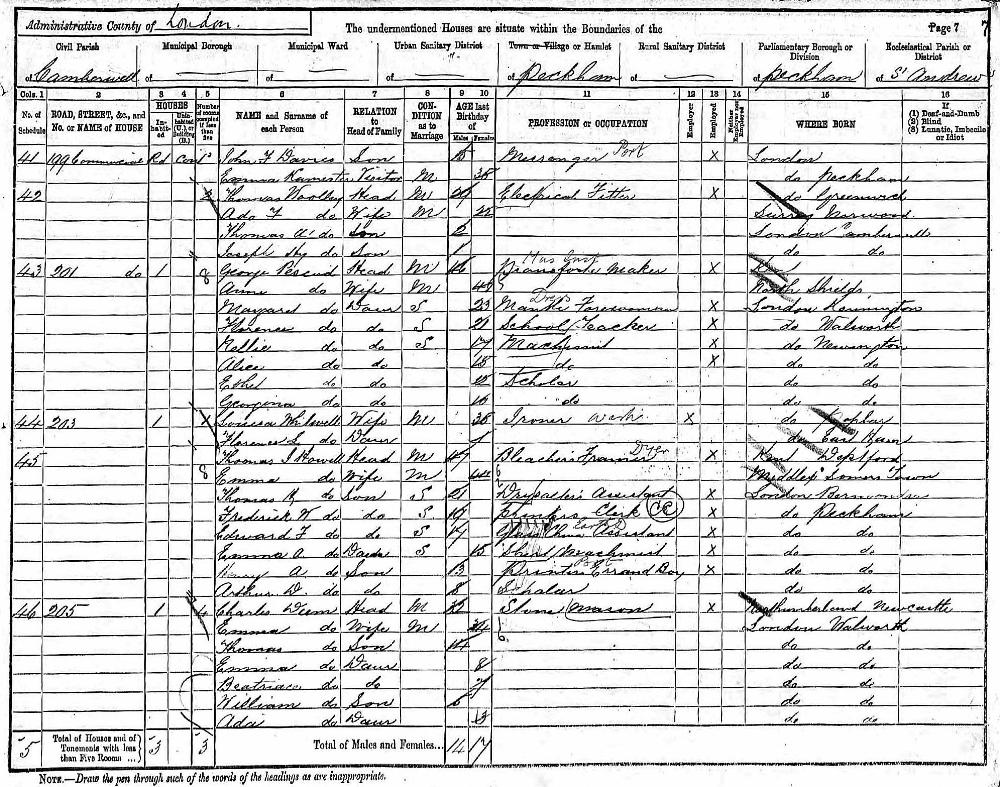 Administrative County of London.
The undermentioned Houses are situate within the Boundaries of the
Page 7
7
Civil Parish
of Camberwell
Municipal Borough
of
Municipal Ward
of
Urban Sanitary District
of
Town or Village or Hamlet
of Peckham
Rural Sanitary District
of
Parliamentary Borough or Division
of Peckham
Ecclesiastical Parish or District
of St Andrew
Cols. 1 2 3 4 5 6 7 8 9 10 11 12 13 14 15 16
No. of Schedule
ROAD, STREET, &c., and No. or NAME of HOUSE
HOUSES
Inhabited
Uninhabited (U.) or Building (B.)
Number of rooms occupied if less than five
NAME and Surname of each Person
RELATION to Head of Family
CONDITION as to Marriage
AGE last Birthday of
Males Females
PROFESSION or OCCUPATION
Employer
Employed
Neither Employer nor Employed
WHERE BORN
If
(1) Deaf-and-Dumb
(2) Blind
(3) Lunatic, Imbecile or Idiot
41 199 Commercial Rd Contd John F Davies Son 15 Messenger Port X London
Emma Visitor M 35 do Peckham
42 Thomas Woolley Head M Electrical Fitter X do Greenwich
Ada F do Wife M 22 Surrey Norwood
Thomas A do Son 2 London Camberwell
Joseph Hy do Son 1 do do
43 201 do 1 8 George Pescud Head M 46 Pianoforte Maker X
Anne do Wife M 48 North Shields
Margaret do Daur S 23 Mantle Forewoman Dress X London Kennington
Florence do do S 21 School Teacher X do Walworth
Nellie do do S 17 Machinist X do Newington
Alice do do 15 do X do do
Ethel do do 12 Scholar do do
Georgina do do 10 do do do
44 203 1 Louisa Wife M 38 Ironer Wash X do Poplar
Florence L do Daur 7 do
45 8 Thomas J Howell Head M 47 Bleachers Framer Dyer X Kent Deptford
Emma do Wife M 44 Middlex Somers Town
Thomas do Son S 21 Assistant X London Bermondsey
Frederick W do do S 19 Clerk CC X do Peckham
Edward F do do S 17 Glass China Assistant X do do
Emma A do Daur S 15 Shirt Machinist X do do
Henry A do Son 13 Printers Errand Boy X do do
Arthur W do do 8 Scholar do do
46 205 1 4 Charles Head M 32 Stone Mason X Northumberland Newcastle
Emma do Wife M 34 London Walworth
Thomas do Son 14 do do
Emma do Daur 8 do do
Beatrice do do 7 do do
William do Son 5 do do
Ada do Daur 3 do do
5 Total of Houses and of Tenements with less than Five Rooms ... 3 3 Total of Males and Females... 14 17
NOTE.—Draw the pen through such of the words of the headings as are inappropriate.